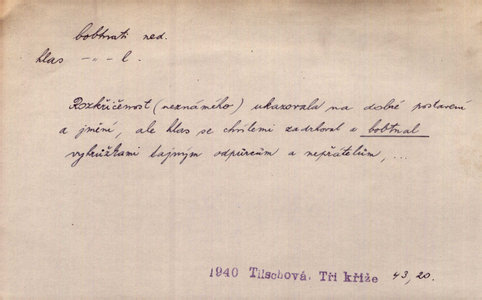 bobtnati ned.
hlas -„- l.
Rozkřičenost (neznámého) ukazovala na dobré postavení
a jmění, ale hlas se chvílemi zadrhoval a bobtnal
výhrůžkami tajným odpůrcům a nepřátelům, ...
1940 Tilschová. Tři kříže 43, 20.